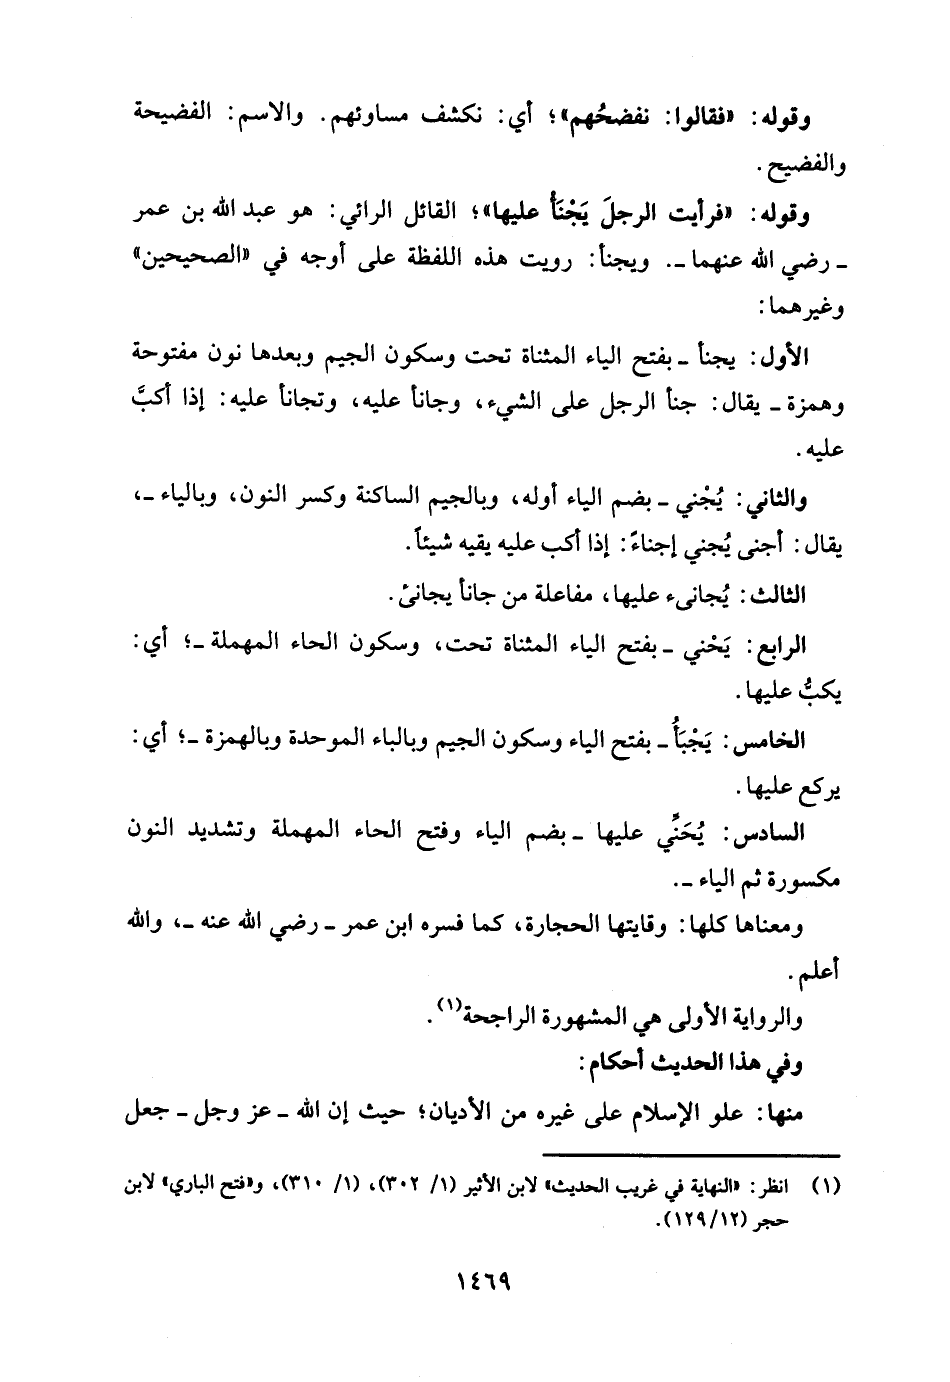 وقوله: «فقالوا: نفضحُهم»؛ أي: نكشف مساوئهم. والاسم: الفضيحة
والفضيح.
وقوله: «فرأيت الرجلَ يَجْنَأُ عليها»؛ القائل الرائي: هو عبد الله بن عمر
ـ رضي الله عنهما ـ. ويجنأ: رويت هذه اللفظة على أوجه في «الصحيحين»
وغيرهما:
الأول: يجنأ ـ بفتح الياء المثناة تحت وسكون الجيم وبعدها نون مفتوحة
وهمزة ـ يقال: جنأ الرجل على الشيء، وجانأ عليه، وتجانأ عليه: إذا أكبَّ
عليه.
والثاني: يُجْني ـ بضم الياء أوله، وبالجيم الساكنة وكسر النون، وبالياء ـ،
يقال: أجنى يُجني إجناءً: إذا أكب عليه يقيه شيئاً.
الثالث: يُجانىء عليها، مفاعلة من جانأ يجانئ.
الرابع: يَحْني ـ بفتح الياء المثناة تحت، وسكون الحاء المهملة ـ؛ أي:
يكبُّ عليها.
الخامس: يَجْبَأُ ـ بفتح الياء وسكون الجيم وبالباء الموحدة وبالهمزة ـ؛ أي:
يركع عليها.
السادس: يُحَنِّي عليها ـ بضم الياء وفتح الحاء المهملة وتشديد النون
مكسورة ثم الياء ـ.
ومعناها كلها: وقايتها الحجارة، كما فسره ابن عمر ـ رضي الله عنه ـ، والله
أعلم.
والرواية الأولى هي المشهورة الراجحة(١).
وفي هذا الحديث أحكام:
منها: علو الإسلام على غيره من الأديان؛ حيث إن الله ـ عز وجل ـ جعل
(١) انظر: «النهاية في غريب الحديث» لابن الأثير (١/ ٣٠٢)، (١/ ٣١٠)، و«فتح الباري» لابن
حجر (١٢/ ١٢٩).
١٤٦٩